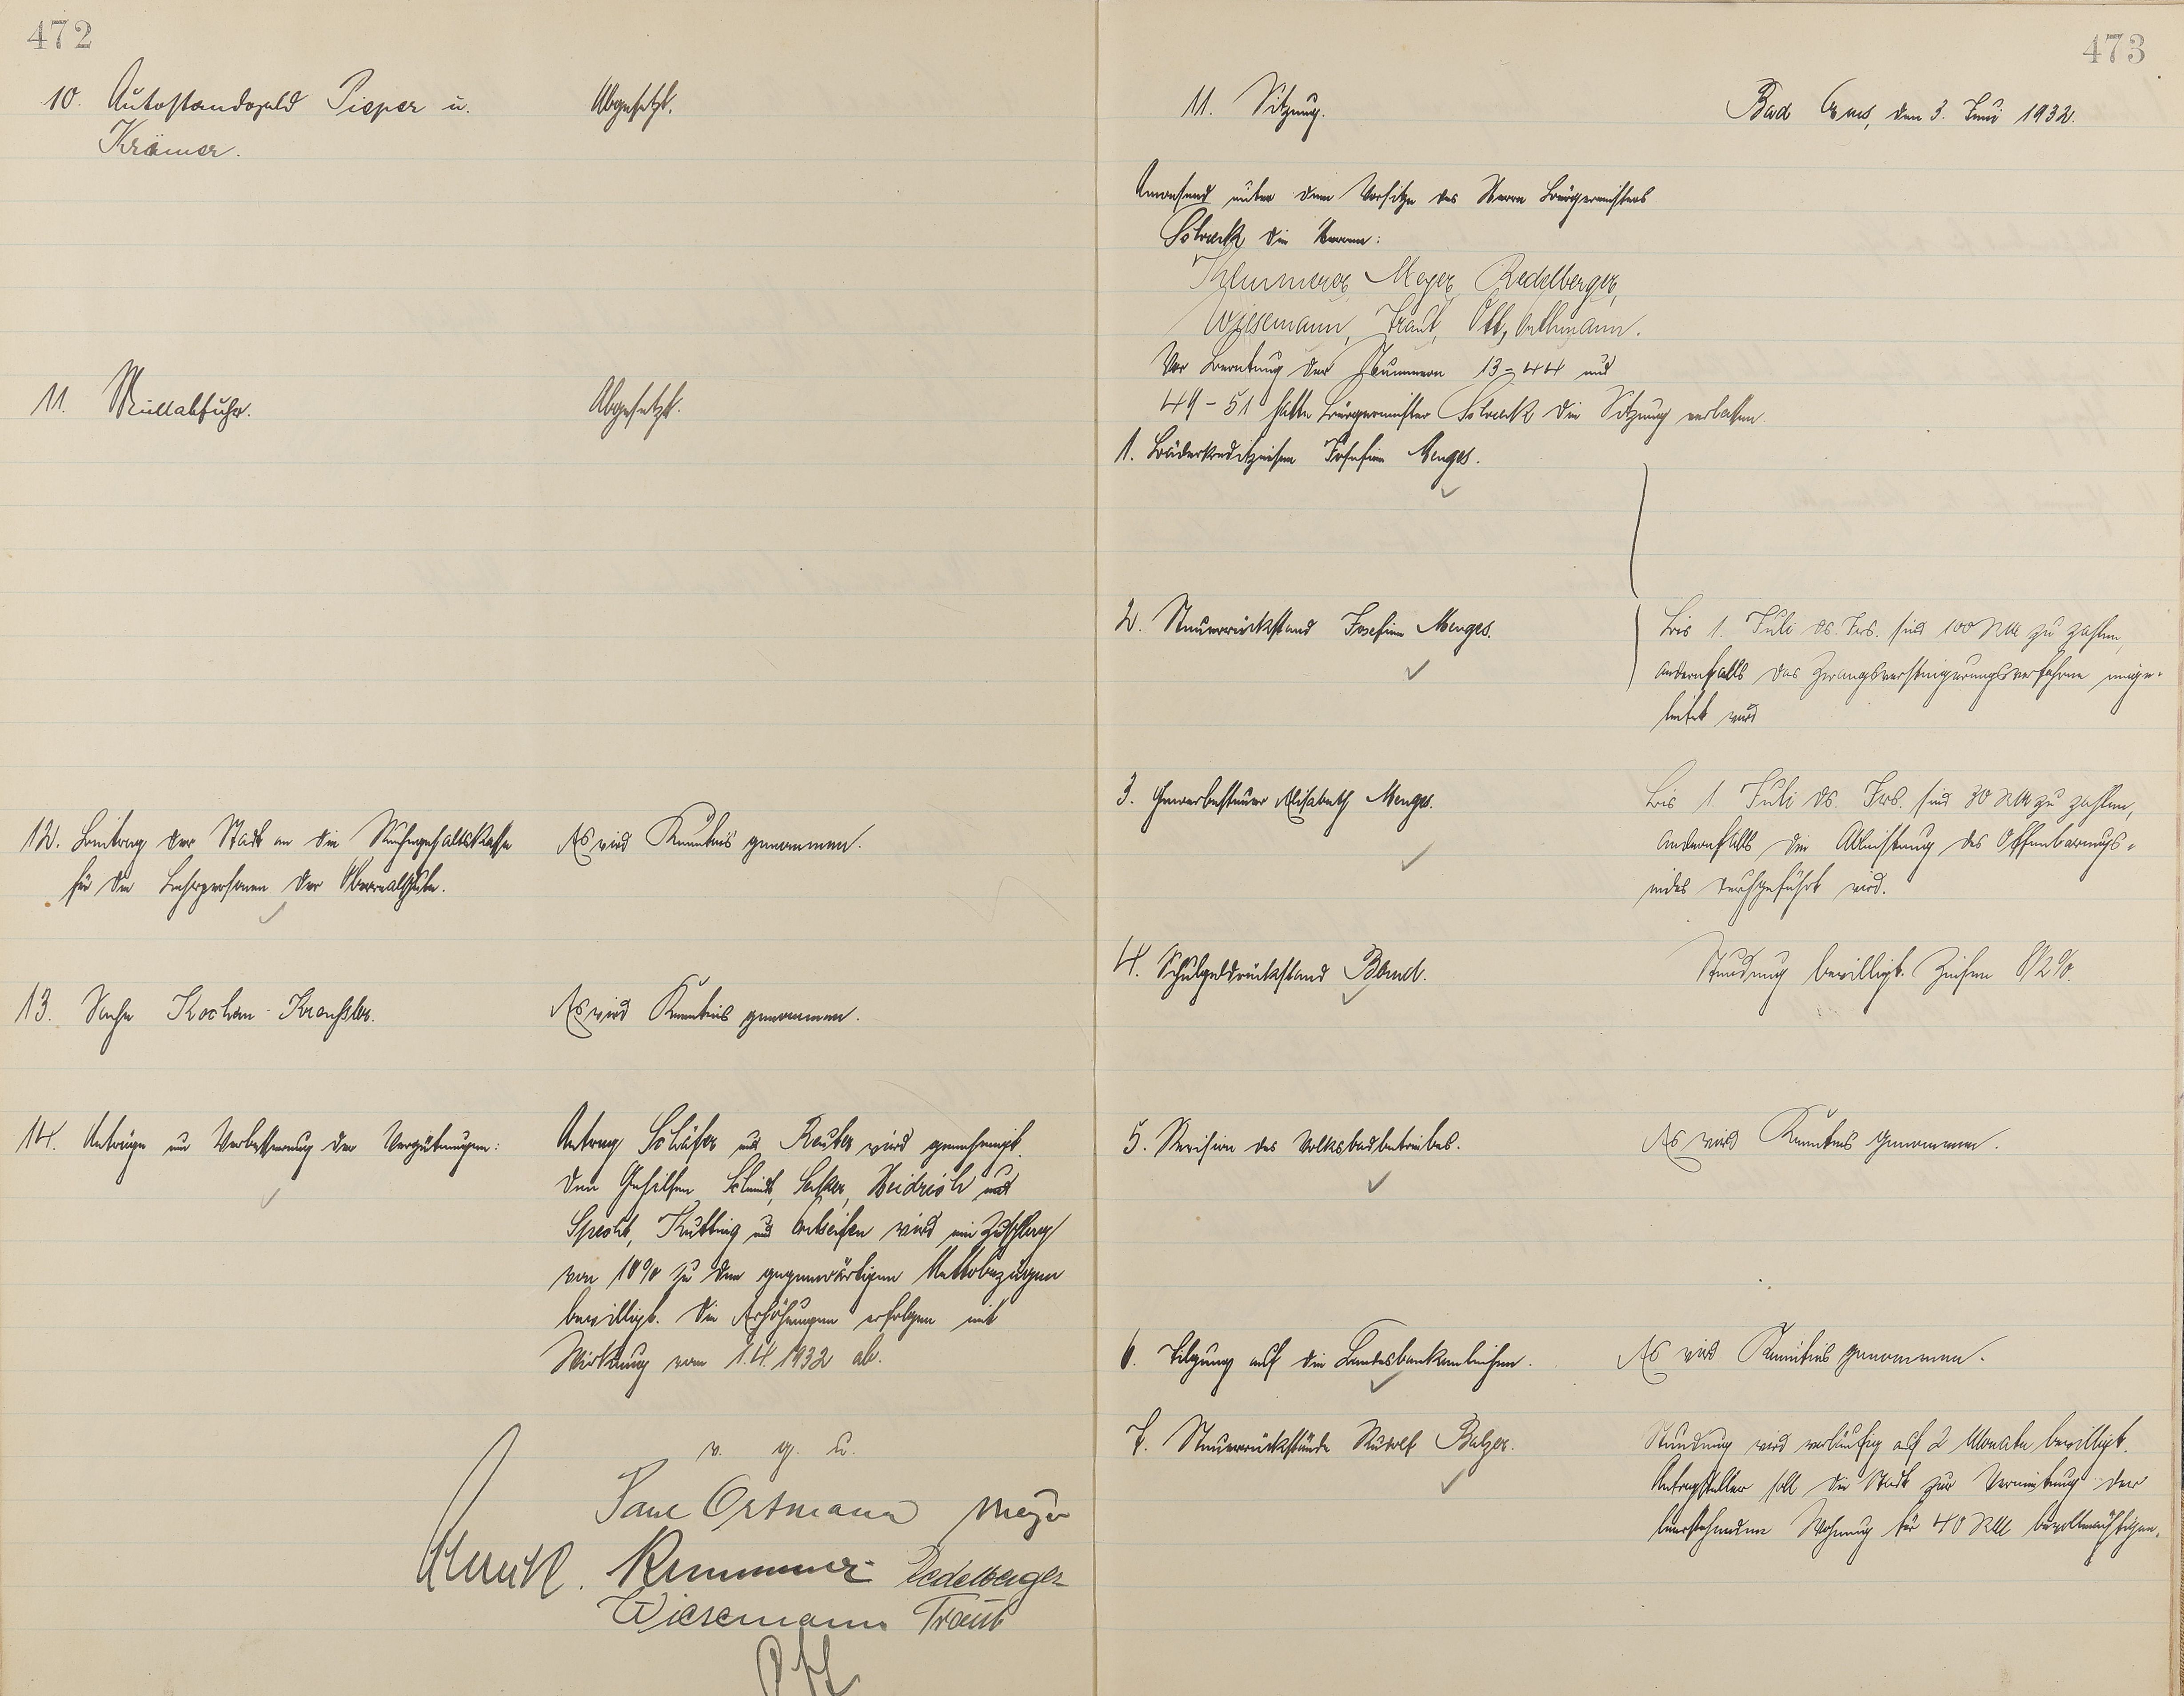 472
10. Autostandgeld Pieper u.
Krämer.
Abgesetzt.
11. Müllabfuhr.
Abgesetzt.
12. Beitrag der Stadt an die Ruhegehaltskasse
für die Lehrpersonen der Oberrealschule.
Es wird Kenntnis genommen.
13. Sache Kochan-
Es wird Kenntnis genommen.
14. Anträge um Verbesserung der Vergütungen:
Antrag Schäfer und Reuter wird genehmigt.
Den Gehilfen Schmidt, Heidrich und
Specht, und wird ein Zuschlag
von 10% zu den gegenwärtigen Nettobezügen
bewilligt. Die Erhöhungen erfolgen mit
Wirkung vom 1.4.1932 ab.
v. g. u.
Ortmann Meyer
Redelberger
Wiesemann Traut
Ott
473
11. Sitzung.
Bad Ems, den 3. Juni 1932.
Anwesend unter dem Vorsitze des Herrn Bürgermeisters
Schrank die Herren:
Meyer, Redelberger,
Wiesemann, Traut, Ott, Orthmann.
Vor Beratung der Nummern 13-44 und
49-51 hatte Bürgermeister Schrank die Sitzung verlassen.
1. Bäderkreditzinsen Josefine Menges.
2. Steuerrückstand Josefine Menges.
Bis 1. Juli ds. Jrs. sind 100 RM zu zahlen,
andernfalls das Zwangsversteigerungsverfahren einge-
leitet wird
3. Gewerbesteuer Elisabeth Menges.
Bis 1. Juli ds. Jrs. sind 30 RM zu zahlen,
andernfalls die Ableistung des Offenbarungs-
eides durchgeführt wird.
4. Schulgeldrückstand Bernd.
Stundung bewilligt. Zinsen 8 1/2 %.
5. Revision des Volksbadbetriebes.
Es wird Kenntnis genommen.
6. Tilgung auf die Landesbankanleihen.
Es wird Kenntnis genommen.
7. Steuerrückstände Rudolf Balzer.
Stundung wird vorläufig auf 2 Monate bewilligt.
Antragsteller soll die Stadt zur Vermietung der
leerstehenden Wohnung für 40 RM bevollmächtigen.